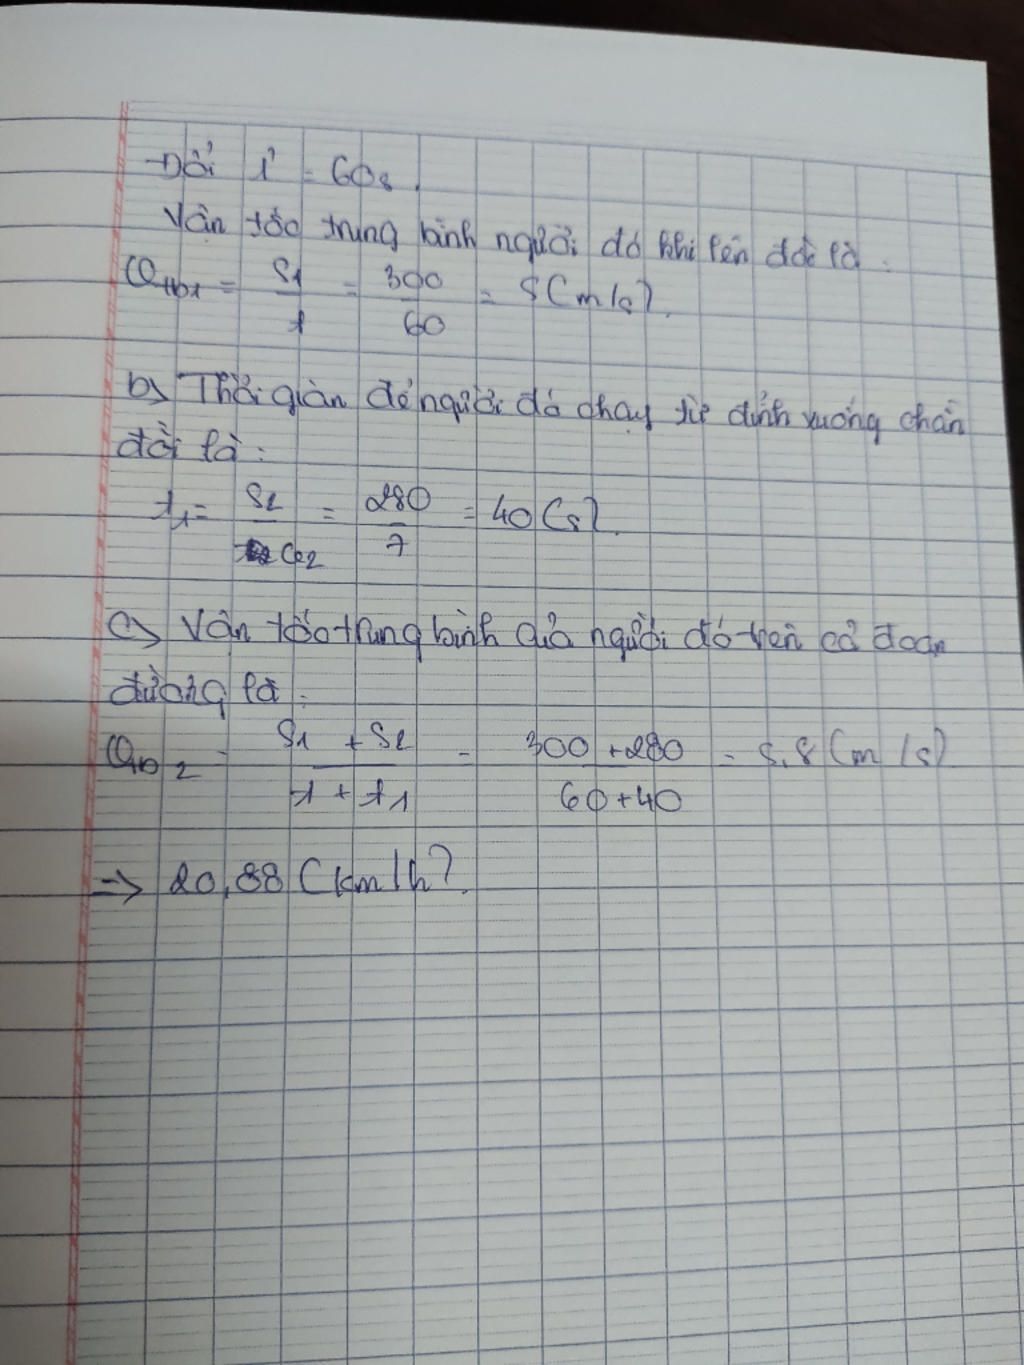 Đổi 1' = 60s.
Vận tốc trung bình người đó khi lên đồi là:
vtb1 = S1/t = 300/60 = 5 (m/s).
b) Thời gian để người đó chạy từ đỉnh xuống chân
đồi là:
t1 = S2/v2 = 280/7 = 40 (s).
c) Vận tốc trung bình của người đó trên cả đoạn
đường là:
vtb2 = S1 + S2/t + t1 = 300 + 280/60 + 40 = 5,8 (m/s)
=> 20,88 (km/h).